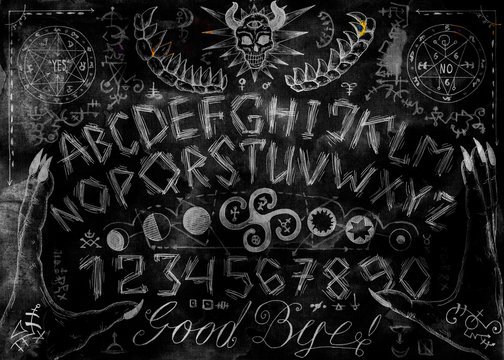 "YES"
NO
ABCDEFGHIJKLM
NOPQRSTUVWXYZ
1234567890
Good Bye!